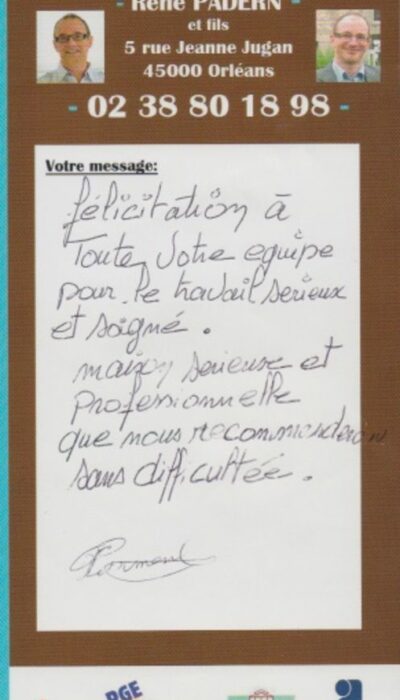 - René PADERN -
et fils
5 rue Jeanne Jugan
45000 Orléans
- 02 38 80 18 98 -
Votre message:
félicitation à
Toute Votre equipe
pour le travail serieux
et soigné.
maison serieuse et
Professionnelle
que nous recommanderons
sans difficultée.
RGE